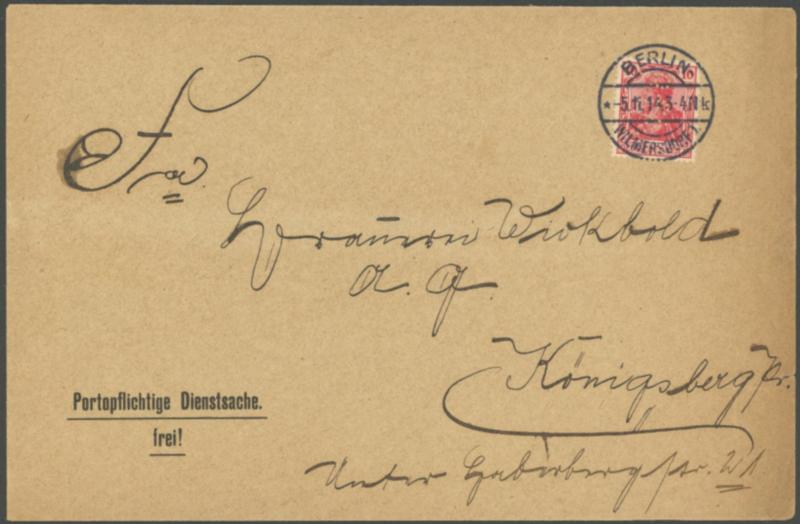 BERLIN-
*-5.11.14.3-4N k
WILMERSDORF 1.
10
Fa
Brauerei Wickbold
A. G.
Königsberg Pr.
Unter Haberberg str.
Portopflichtige Dienstsache.
frei!